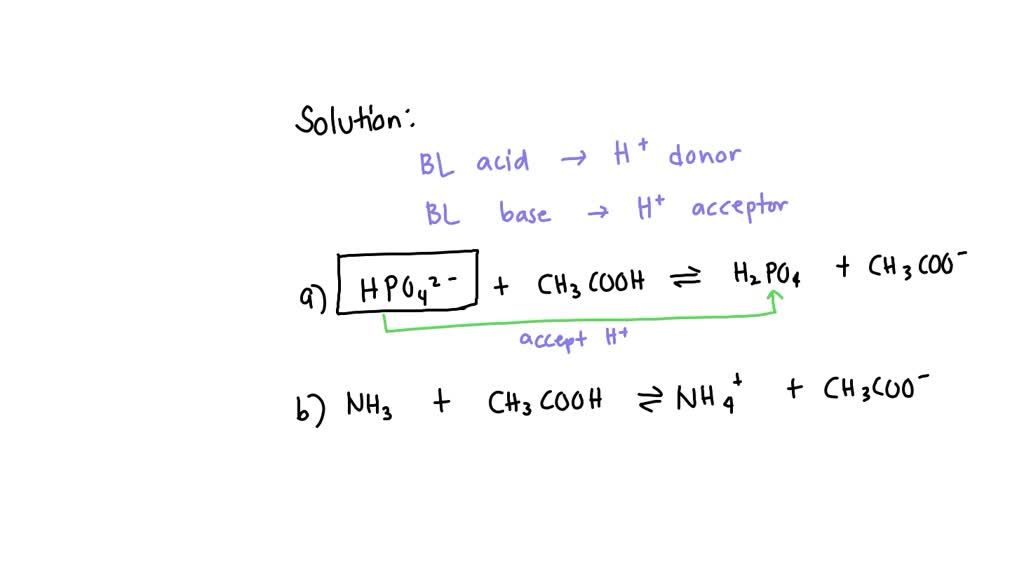 Solution:
BL acid → H⁺ donor
BL base → H⁺ acceptor
a) HPO₄²⁻ + CH₃COOH ⇌ H₂PO₄ + CH₃COO⁻
accept H⁺
b) NH₃ + CH₃COOH ⇌ NH₄⁺ + CH₃COO⁻